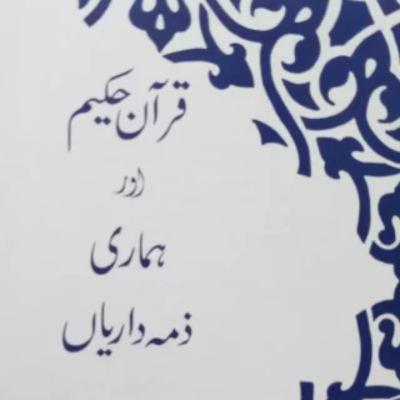 قرآن حکیم
اور
ہماری
ذمہ داریاں